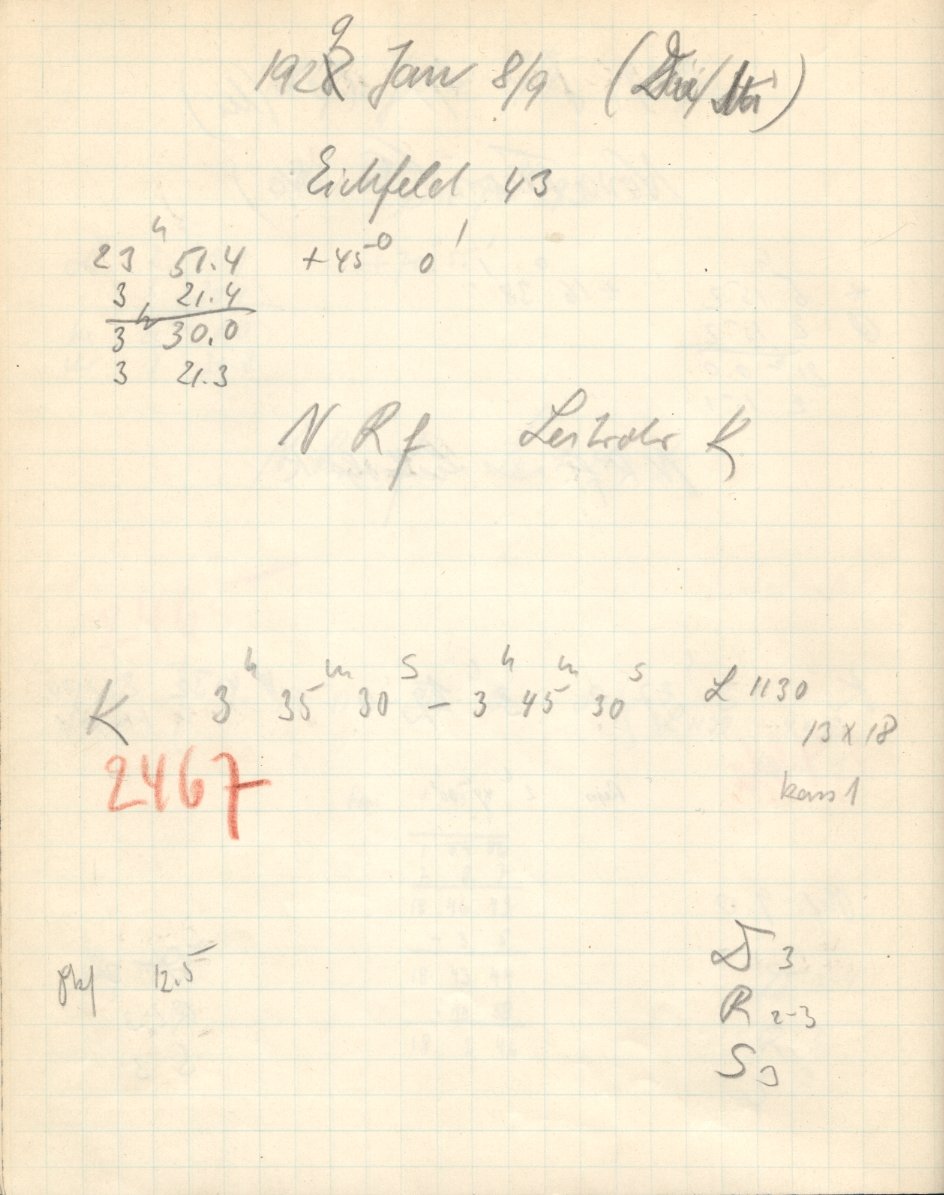 1929 Jan 8/9
Eichfeld 43
23ʰ 51.4 +45° 0'
3 21.4
3ʰ 30.0
3 21.3
N R f Leitrohr K
K 3ʰ 35ᵐ 30ˢ – 3ʰ 45ᵐ 30ˢ L 1130
13 x 18
2467
Kass 1
D 3
12.5
R 2-3
S 3